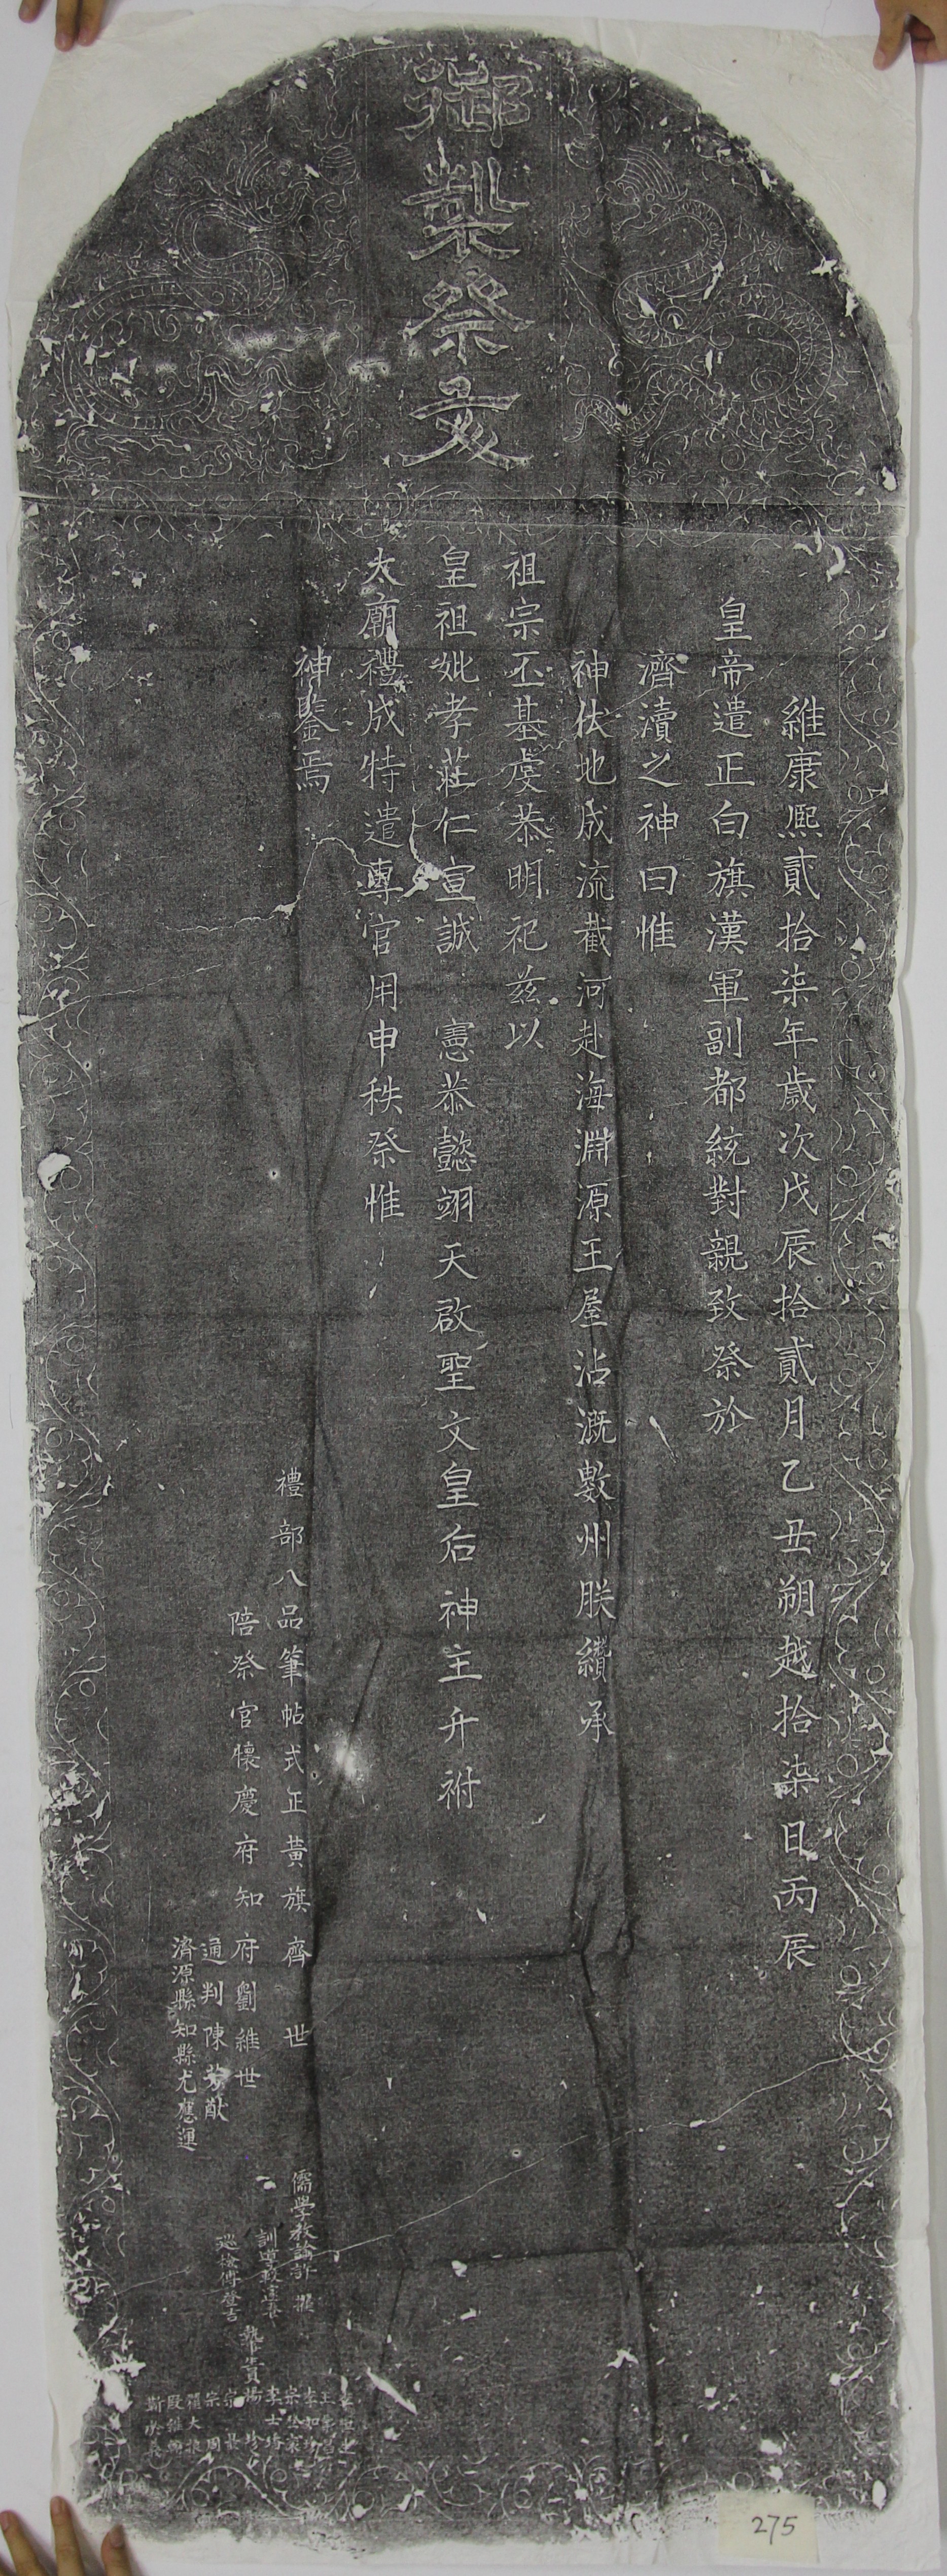 御製祭文
維康熙貳拾柒年歲次戊辰拾貳月乙丑朔越拾柒日丙辰
皇帝遣正白旗漢軍副都統對親致祭於
濟瀆之神曰惟
神伏地成流截河赴海淵源王屋沾溉數州朕纘承
祖宗丕基虔恭明祀茲以
皇祖妣孝莊仁宣誠憲恭懿翊天啟聖文皇后神主升祔
太廟禮成特遣專官用申秩祭惟
神鑒焉
禮部八品筆帖式正黃旗齊世
陪祭官懷慶府知府劉維世
通判陳芳猷
濟源縣知縣尤應運
儒學教諭許
訓導
巡檢傅
275